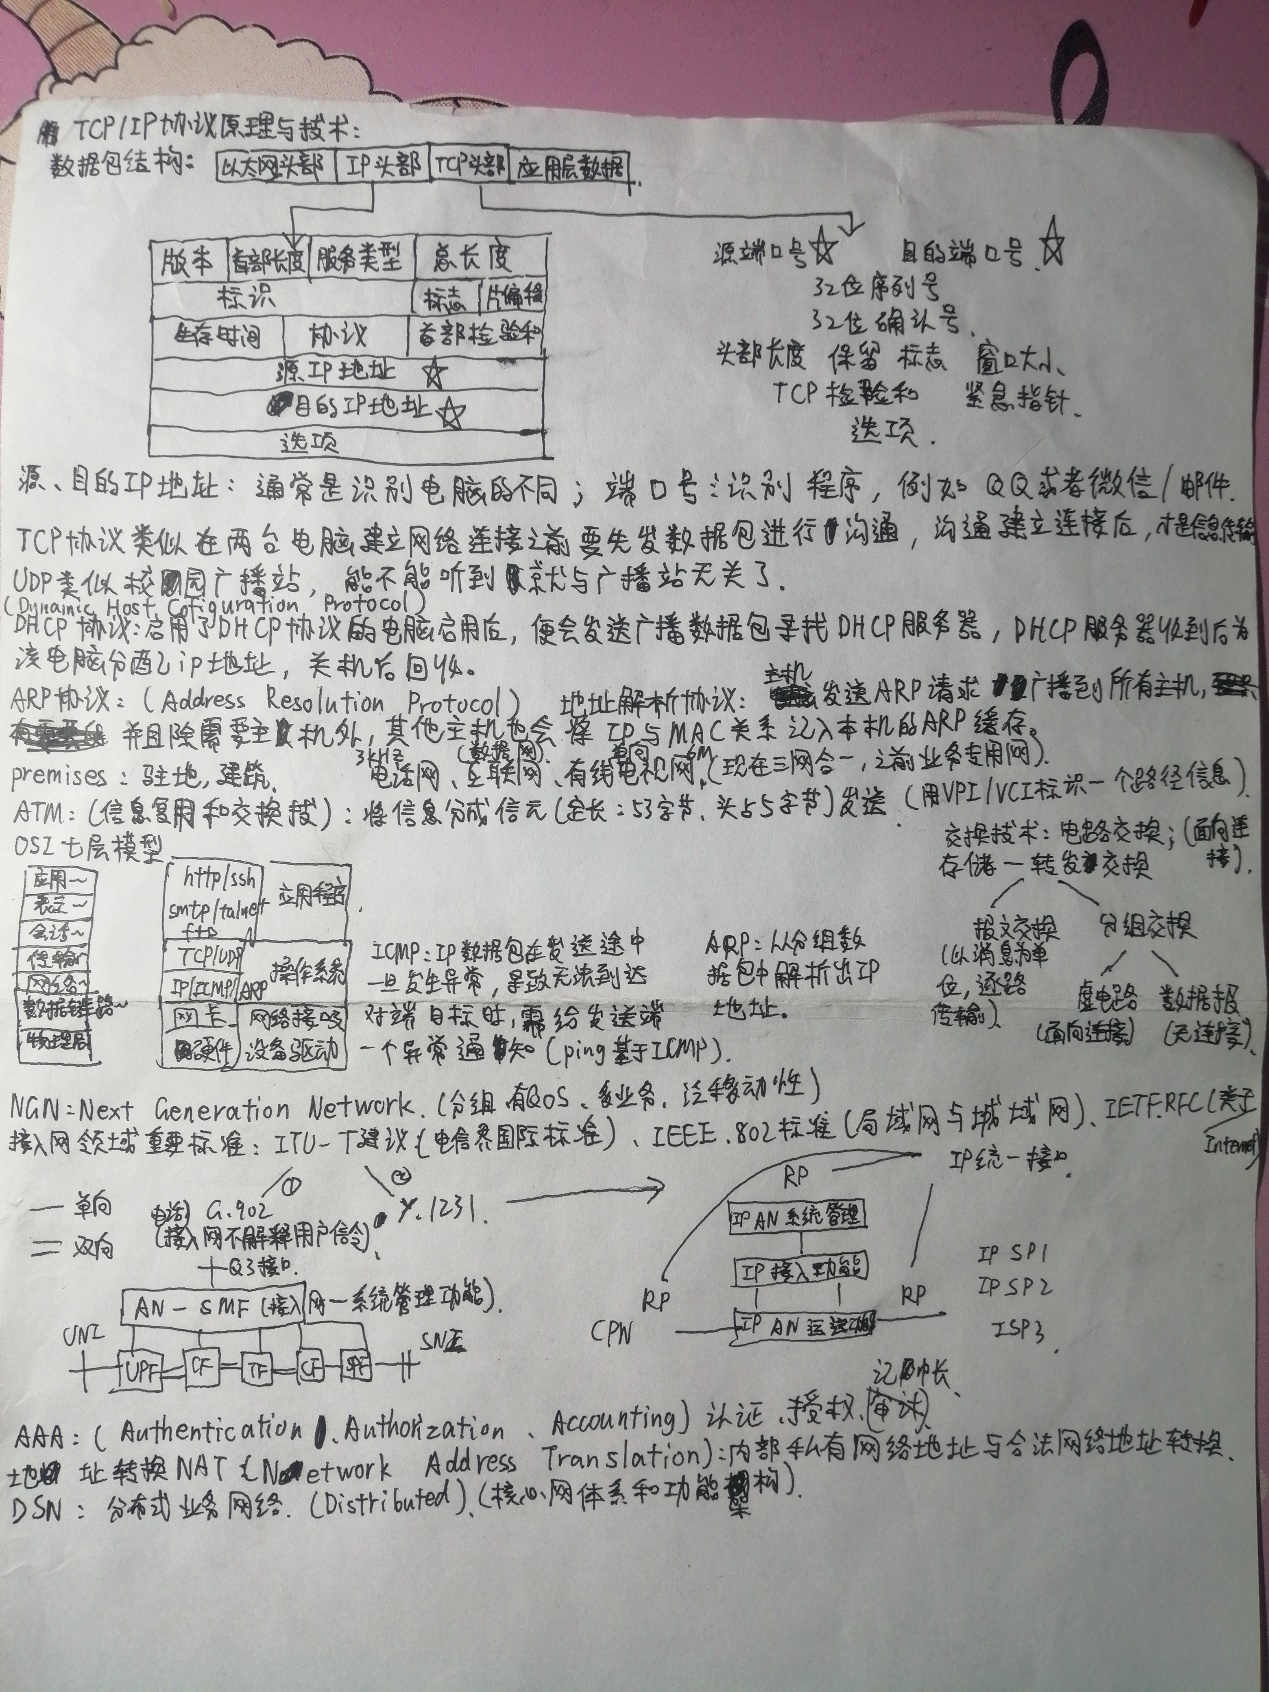 TCP/IP协议原理与技术:
数据包结构: 以太网头部 IP头部 TCP头部 应用层数据.
版本 首部长度 服务类型 总长度
标识 标志 片偏移
生存时间 协议 首部检验和
源IP地址 ☆
目的IP地址 ☆
选项
源端口号☆ 目的端口号.☆
32位序列号
32位确认号.
头部长度 保留 标志 窗口大小、
TCP检验和 紧急指针.
选项.
源、目的IP地址: 通常是识别电脑的不同; 端口号:识别程序, 例如QQ或者微信/邮件.
TCP协议类似在两台电脑建立网络连接之前要先发数据包进行沟通, 沟通建立连接后, 才是信息传输
UDP类似校园广播站, 能不能听到就与广播站无关了.
(Dynamic Host Cofiguration Protocol)
DHCP协议:启用了DHCP协议的电脑启用后, 便会发送广播数据包寻找DHCP服务器, DHCP服务器收到后为
该电脑分配ip地址, 关机后回收。
ARP协议: (Address Resolution Protocol) 地址解析协议: 主机发送ARP请求广播到所有主机,
并且除需要主机外, 其他主机也会将IP与MAC关系记入本机的ARP缓存。
3kHz (数据网) 单向 6M
premises: 驻地, 建筑. 电话网、互联网、有线电视网.(现在三网合一, 之前业务专用网).
ATM: (信息复用和交换技): 将信息分成信元(定长:53字节、头占5字节)发送. (用VPI/VCI标识一个路径信息).
OSI七层模型
应用~
表示~
会话~
传输~
网络~
数据链路~
物理层
http/ssh
smtp/talnet
ftp
应用程序.
TCP/UDP
IP/ICMP/ARP
操作系统
网卡 网络接口
硬件 设备驱动
ICMP: IP数据包在发送途中
一旦发生异常, 导致无法到达
对端目标时, 需给发送端
一个异常通知(ping基于ICMP).
ARP: 从分组数
据包中解析出IP
地址.
交换技术: 电路交换; (面向连接).
存储一转发交换
报文交换 分组交换
(以消息为单
位, 逐路
传输)
虚电路 数据报
(面向连接) (无连接).
NGN:Next Generation Network.(分组 有QoS、多业务, 泛移动性)
接入网领域重要标准: ITU-T建议(电信界国际标准)、IEEE.802标准(局域网与城域网)、IETF.RFC(关于
Internet)
— 单向
= 双向
① ②
电话) G.902 Y.1231.
(接入网不解释用户信令).
Q3接口.
AN-SMF (接入网一系统管理功能).
UNI SNI
UPF CF TF CF SPF
IP统一接口.
RP
IP AN系统管理
IP接入功能
IP AN运送功能
RP RP
CPN
IP SP1
IP SP2
ISP3.
记账.
AAA: (Authentication、Authorization、Accounting) 认证、授权、(审计)
地址转换NAT(Network Address Translation):内部私有网络地址与合法网络地址转换.
DSN: 分布式业务网络. (Distributed).(核心网体系和功能架构).